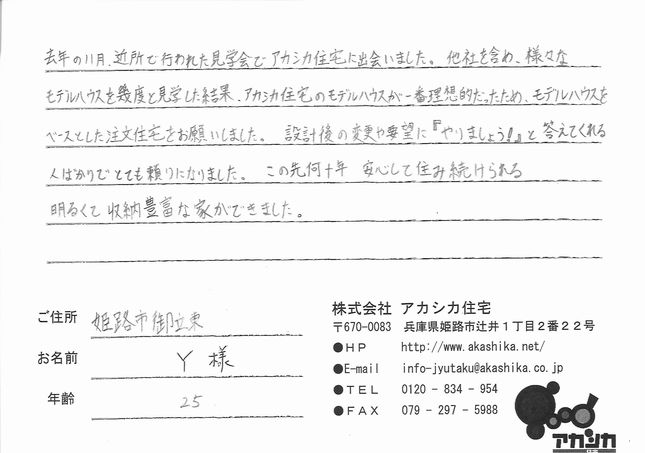 去年の11月、近所で行われた見学会でアカシカ住宅に出会いました。他社を含め、様々な
モデルハウスを幾度と見学した結果、アカシカ住宅のモデルハウスが一番理想的だったため、モデルハウスを
ベースとした注文住宅をお願いしました。設計後の変更や要望に『やりましょう!』と答えてくれる
人ばかりでとても頼りになりました。この先何十年 安心して住み続けられる
明るくて収納豊富な家ができました。
ご住所 姫路市御立東
お名前 Y 様
年齢 25
株式会社 アカシカ住宅
〒670-0083 兵庫県姫路市辻井1丁目2番22号
●HP http://www.akashika.net/
●E-mail info-jyutaku@akashika.co.jp
●TEL 0120-834-954
●FAX 079-297-5988
アカシカ